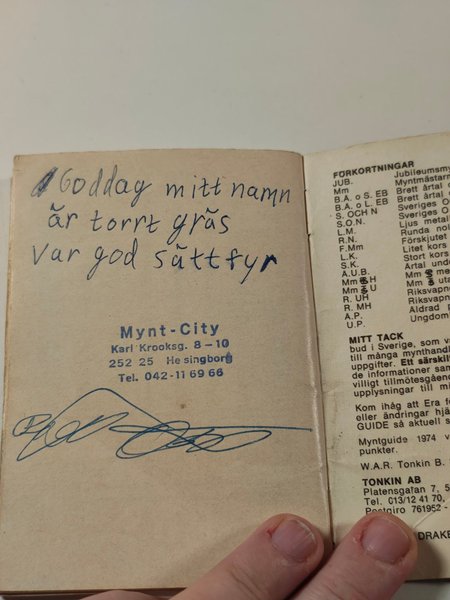 Goddag mitt namn
är torrt gräs
Var god sätt fyr
Mynt-City
Karl Krooksg. 8-10
252 25 Helsingborg
Tel. 042-11 69 66
FÖRKORTNINGAR
JUB. Jubileumsmy
Mm Myntmästarm
B.Å. o S. EB Brett årtal o
B.Å. o L. EB Brett årtal
S. OCH N Sveriges O
S.O.N. Sveriges O
L.M. Ljus metal
R.N. Runda nol
F.Mm Förskjutet
L.K. Litet kors
S.K. Stort kors
Å.U.B. Årtal unde
Mm H Mm me
Mm U Mm uta
R. UH Riksvapn
R. MH Riksvapne
A.P. Äldrad
U.P. Ungdom
MITT TACK
bud i Sverige, som v
till många mynthandl
uppgifter. Ett särskil
de informationer sam
villigt tillmötesgåen
upplysningar till mi
Kom ihåg att Era f
eller ändringar hjä
GUIDE så aktuell s
Myntguide 1974 v
punkter.
W.A.R. Tonkin B.
TONKIN AB
Platensgatan 7, 5
Tel. 013/12 41 70,
Postgiro 761952 -
DRAKE